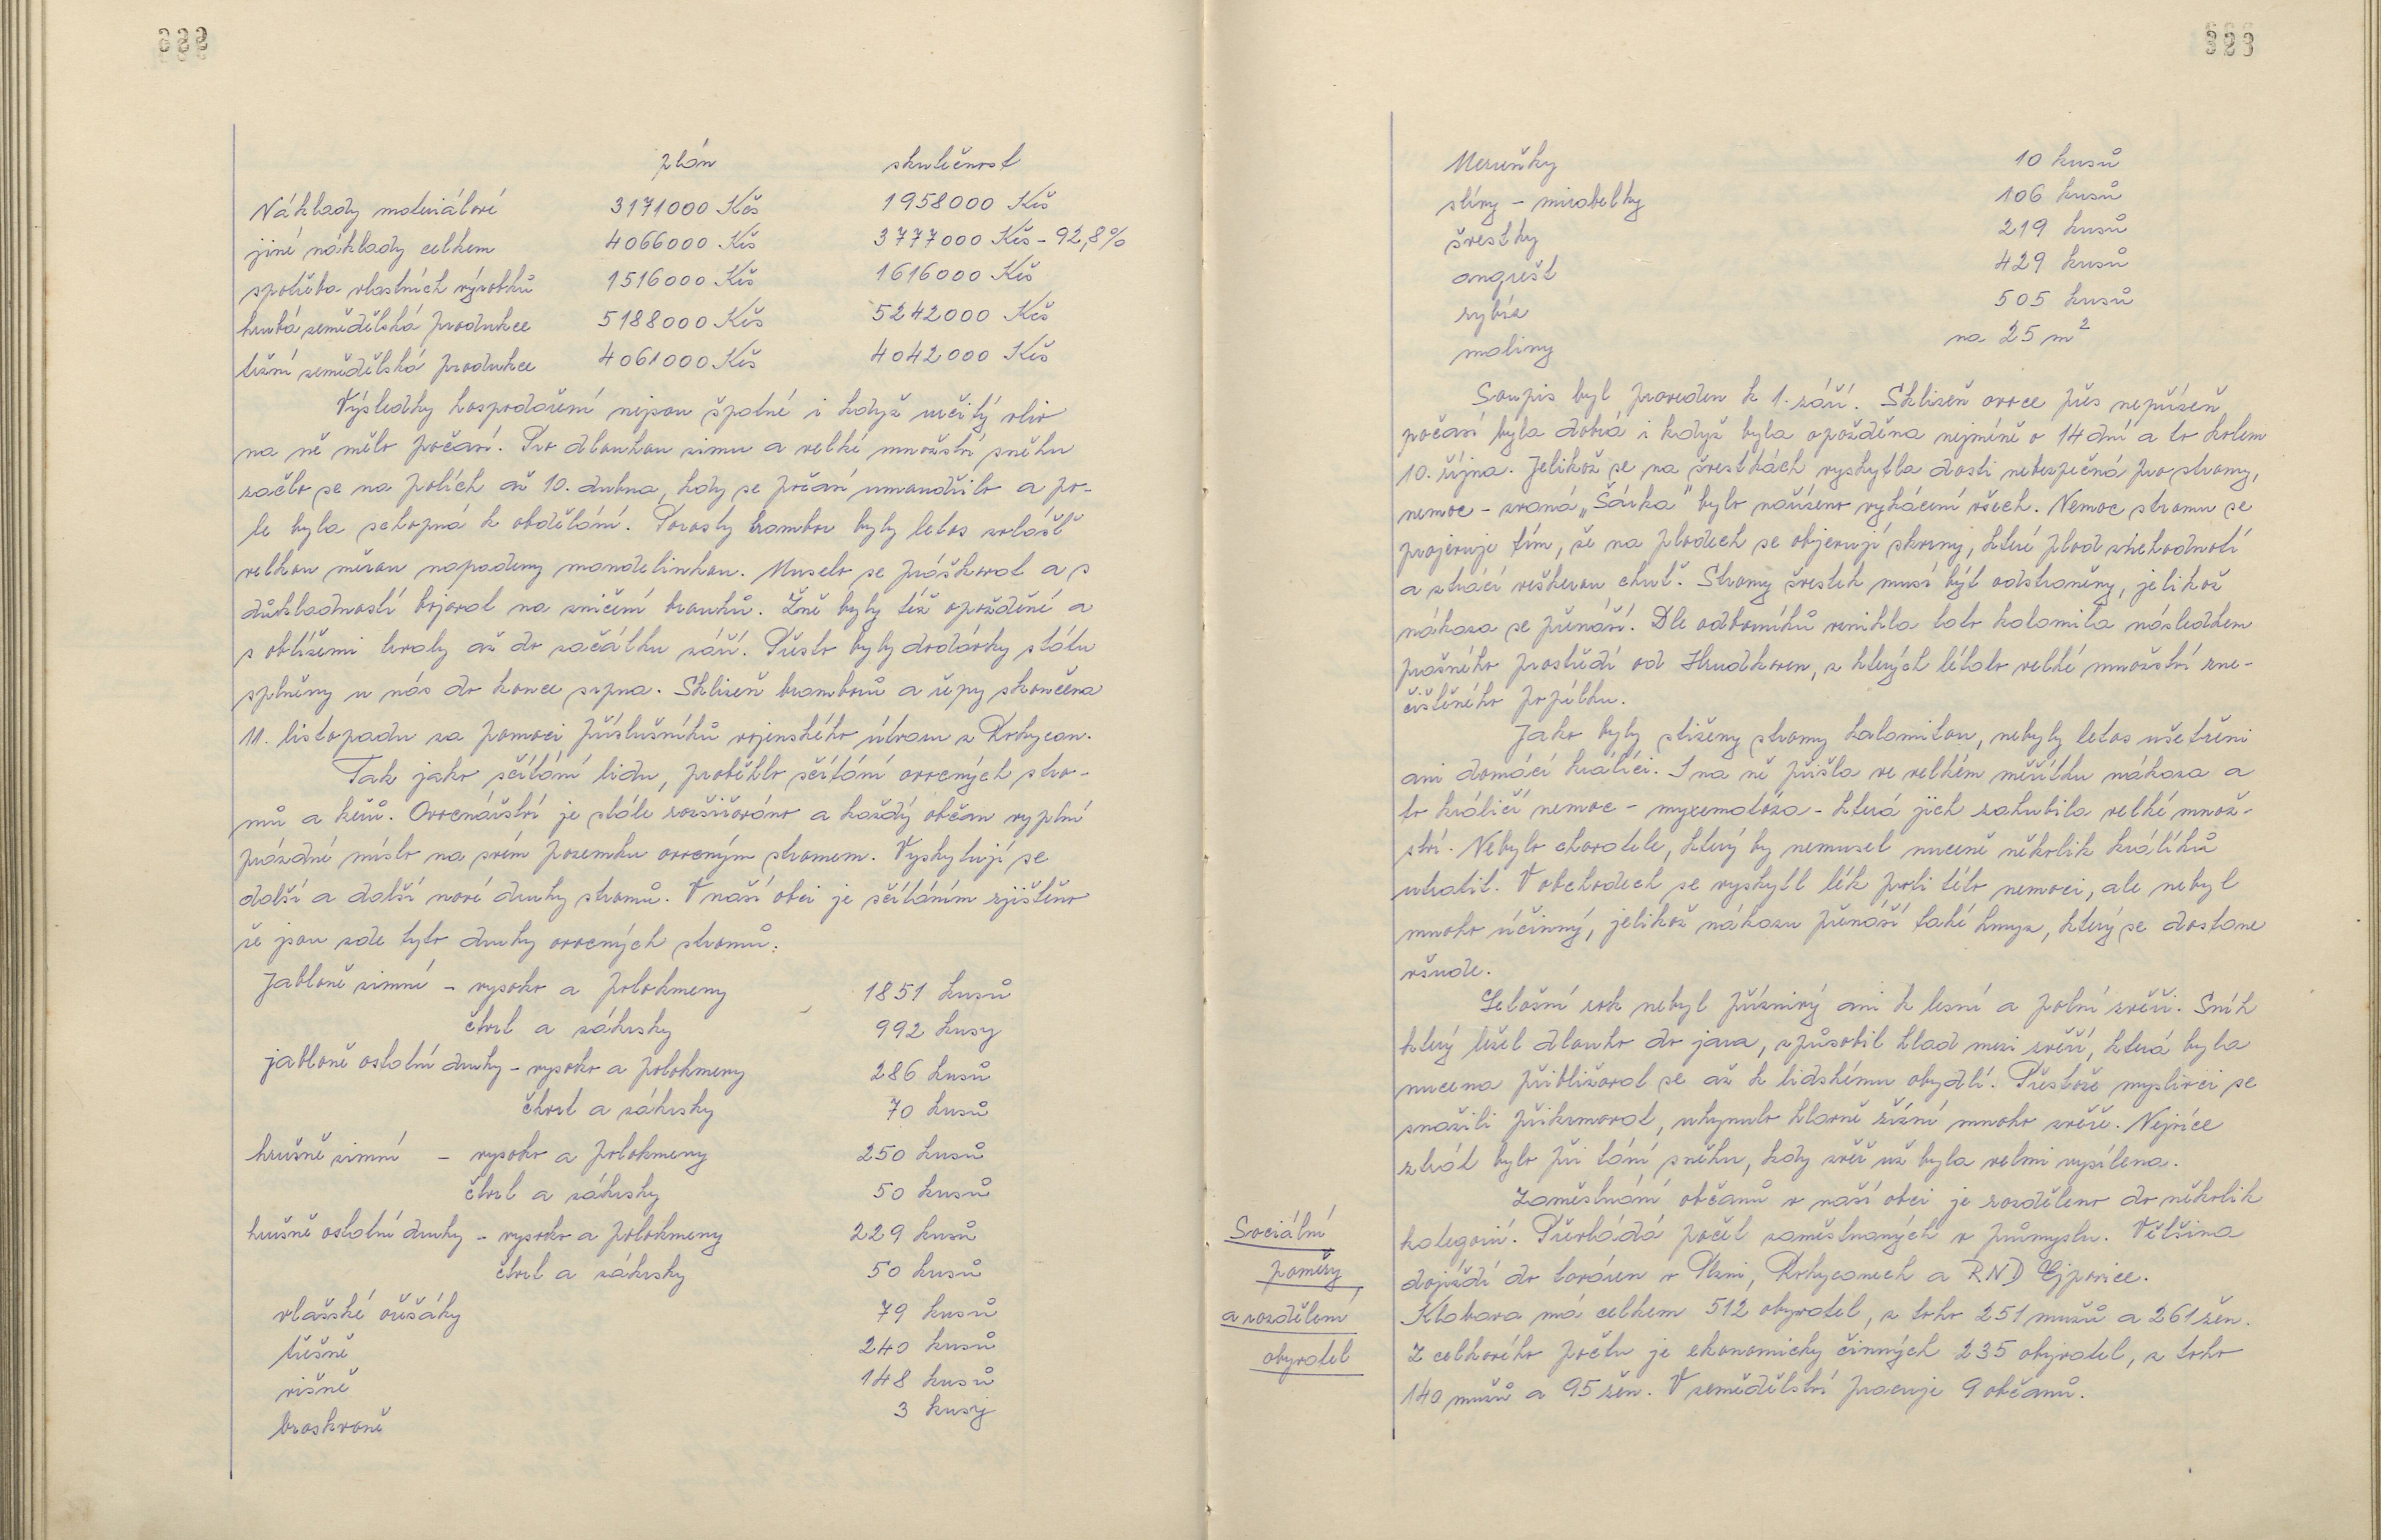 plán skutečnost
Náklady materiálové 3171000 Kčs 1958000 Kčs
jiné náklady celkem 4066000 Kčs 3777000 Kčs - 92,8%
spotřeba vlastních výrobků 1516000 Kčs 1616000 Kčs
hrubá zemědělská produkce 5188000 Kčs 5242000 Kčs
tržní zemědělská produkce 4061000 Kčs 4042000 Kčs
Výsledky hospodaření nejsou špatné i když určitý vliv
na ně mělo počasí. Pro dlouhou zimu a velké množství sněhu
začlo se na polích až 10. dubna, kdy se počasí umoudřilo a po-
le byla schopná k obdělání. Porosty brambor byly letos zvlášť
velkou měrou napadeny mandelinkou. Muselo se práškovat a s
důkladností bojovat na zničení brouků. Žně byly též opožděné a
s obtížemi trvaly až do začátku září. Přesto byly dodávky státu
splněny u nás do konce srpna. Sklizeň brambor a řepy skončena
11. listopadu za pomoci příslušníků vojenského útvaru z Rokycan.
Tak jako sčítání lidu, proběhlo sčítání ovocných stro-
mů a keřů. Ovocnářství je stále rozšiřováno a každý občan vyplní
prázdné místo na svém pozemku ovocným stromem. Vyskytují se
další a další nové druhy stromů. V naší obci je sčítáním zjištěno
že jsou zde tyto druhy ovocných stromů:
Jabloně zimní - vysoko a polokmeny 1851 kusů
čtvrt a zákrsky 992 kusy
jabloně ostatní druhy - vysoko a polokmeny 286 kusů
čtvrt a zákrsky 70 kusů
hrušně zimní - vysoko a polokmeny 250 kusů
čtvrt a zákrsky 50 kusů
hrušně ostatní druhy - vysoko a polokmeny 229 kusů
čtvrt a zákrsky 50 kusů
vlašské ořešáky 79 kusů
třešně 240 kusů
višně 148 kusů
broskvoně 3 kusy
323
Meruňky 10 kusů
slívy - mirabelky 106 kusů
švestky 219 kusů
angrešt 429 kusů
rybíz 505 kusů
maliny na 25 m²
Soupis byl proveden k 1. září. Sklizeň ovoce přes nepřízeň
počasí byla dobrá i když byla opožděna nejméně o 14 dní a to kolem
10. října. Jelikož se na švestkách vyskytla dosti nebezpečná pro stromy,
nemoc - zvaná „Šárka" bylo nařízeno vykácení všech. Nemoc stromu se
projevuje tím, že na plodech se objevují skvrny, které plod znehodnotí
a ztrácí veškerou chuť. Stromy švestek musí být odstraněny, jelikož
nákaza se přenáší. Dle odborníků vznikla tato kalamita následkem
prašného prostředí od Hrudkoven, z kterých létalo velké množství zne-
čištěného popílku.
Jako byly stiženy stromy kalamitou, nebyly letos ušetřeni
ani domácí králíci. I na ně přišla ve velkém měřítku nákaza a
to králičí nemoc - myxematóza - která jich zahubila velké množ-
ství. Nebylo chovatele, který by nemusel nuceně několik králíků
utratit. V obchodech se vyskytl lék proti této nemoci, ale nebyl
mnoho účinný, jelikož nákazu přenáší také hmyz, který se dostane
všude.
Letošní rok nebyl příznivý ani k lesní a polní zvěři. Sníh
který ležel dlouho do jara, způsobil hlad mezi zvěří, která byla
nucena přibližovat se až k lidskému obydlí. Přestože myslivci se
snažili přikrmovat, uhynulo hlavně srnčí mnoho zvěře. Nejvíce
ztrát bylo při tání sněhu, kdy zvěř už byla velmi vysílena.
Sociální
poměry
a rozdělení
obyvatel
Zaměstnání občanů v naší obci je rozděleno do několik
kategorií. Převládá počet zaměstnaných v průmyslu. Většina
dojíždí do továren v Plzni, Rokycanech a RND Ejpovice.
Klabava má celkem 512 obyvatel, z toho 251 mužů a 261 žen.
Z celkového počtu je ekonomicky činných 235 obyvatel, z toho
140 mužů a 95 žen. V zemědělství pracuje 9 občanů.